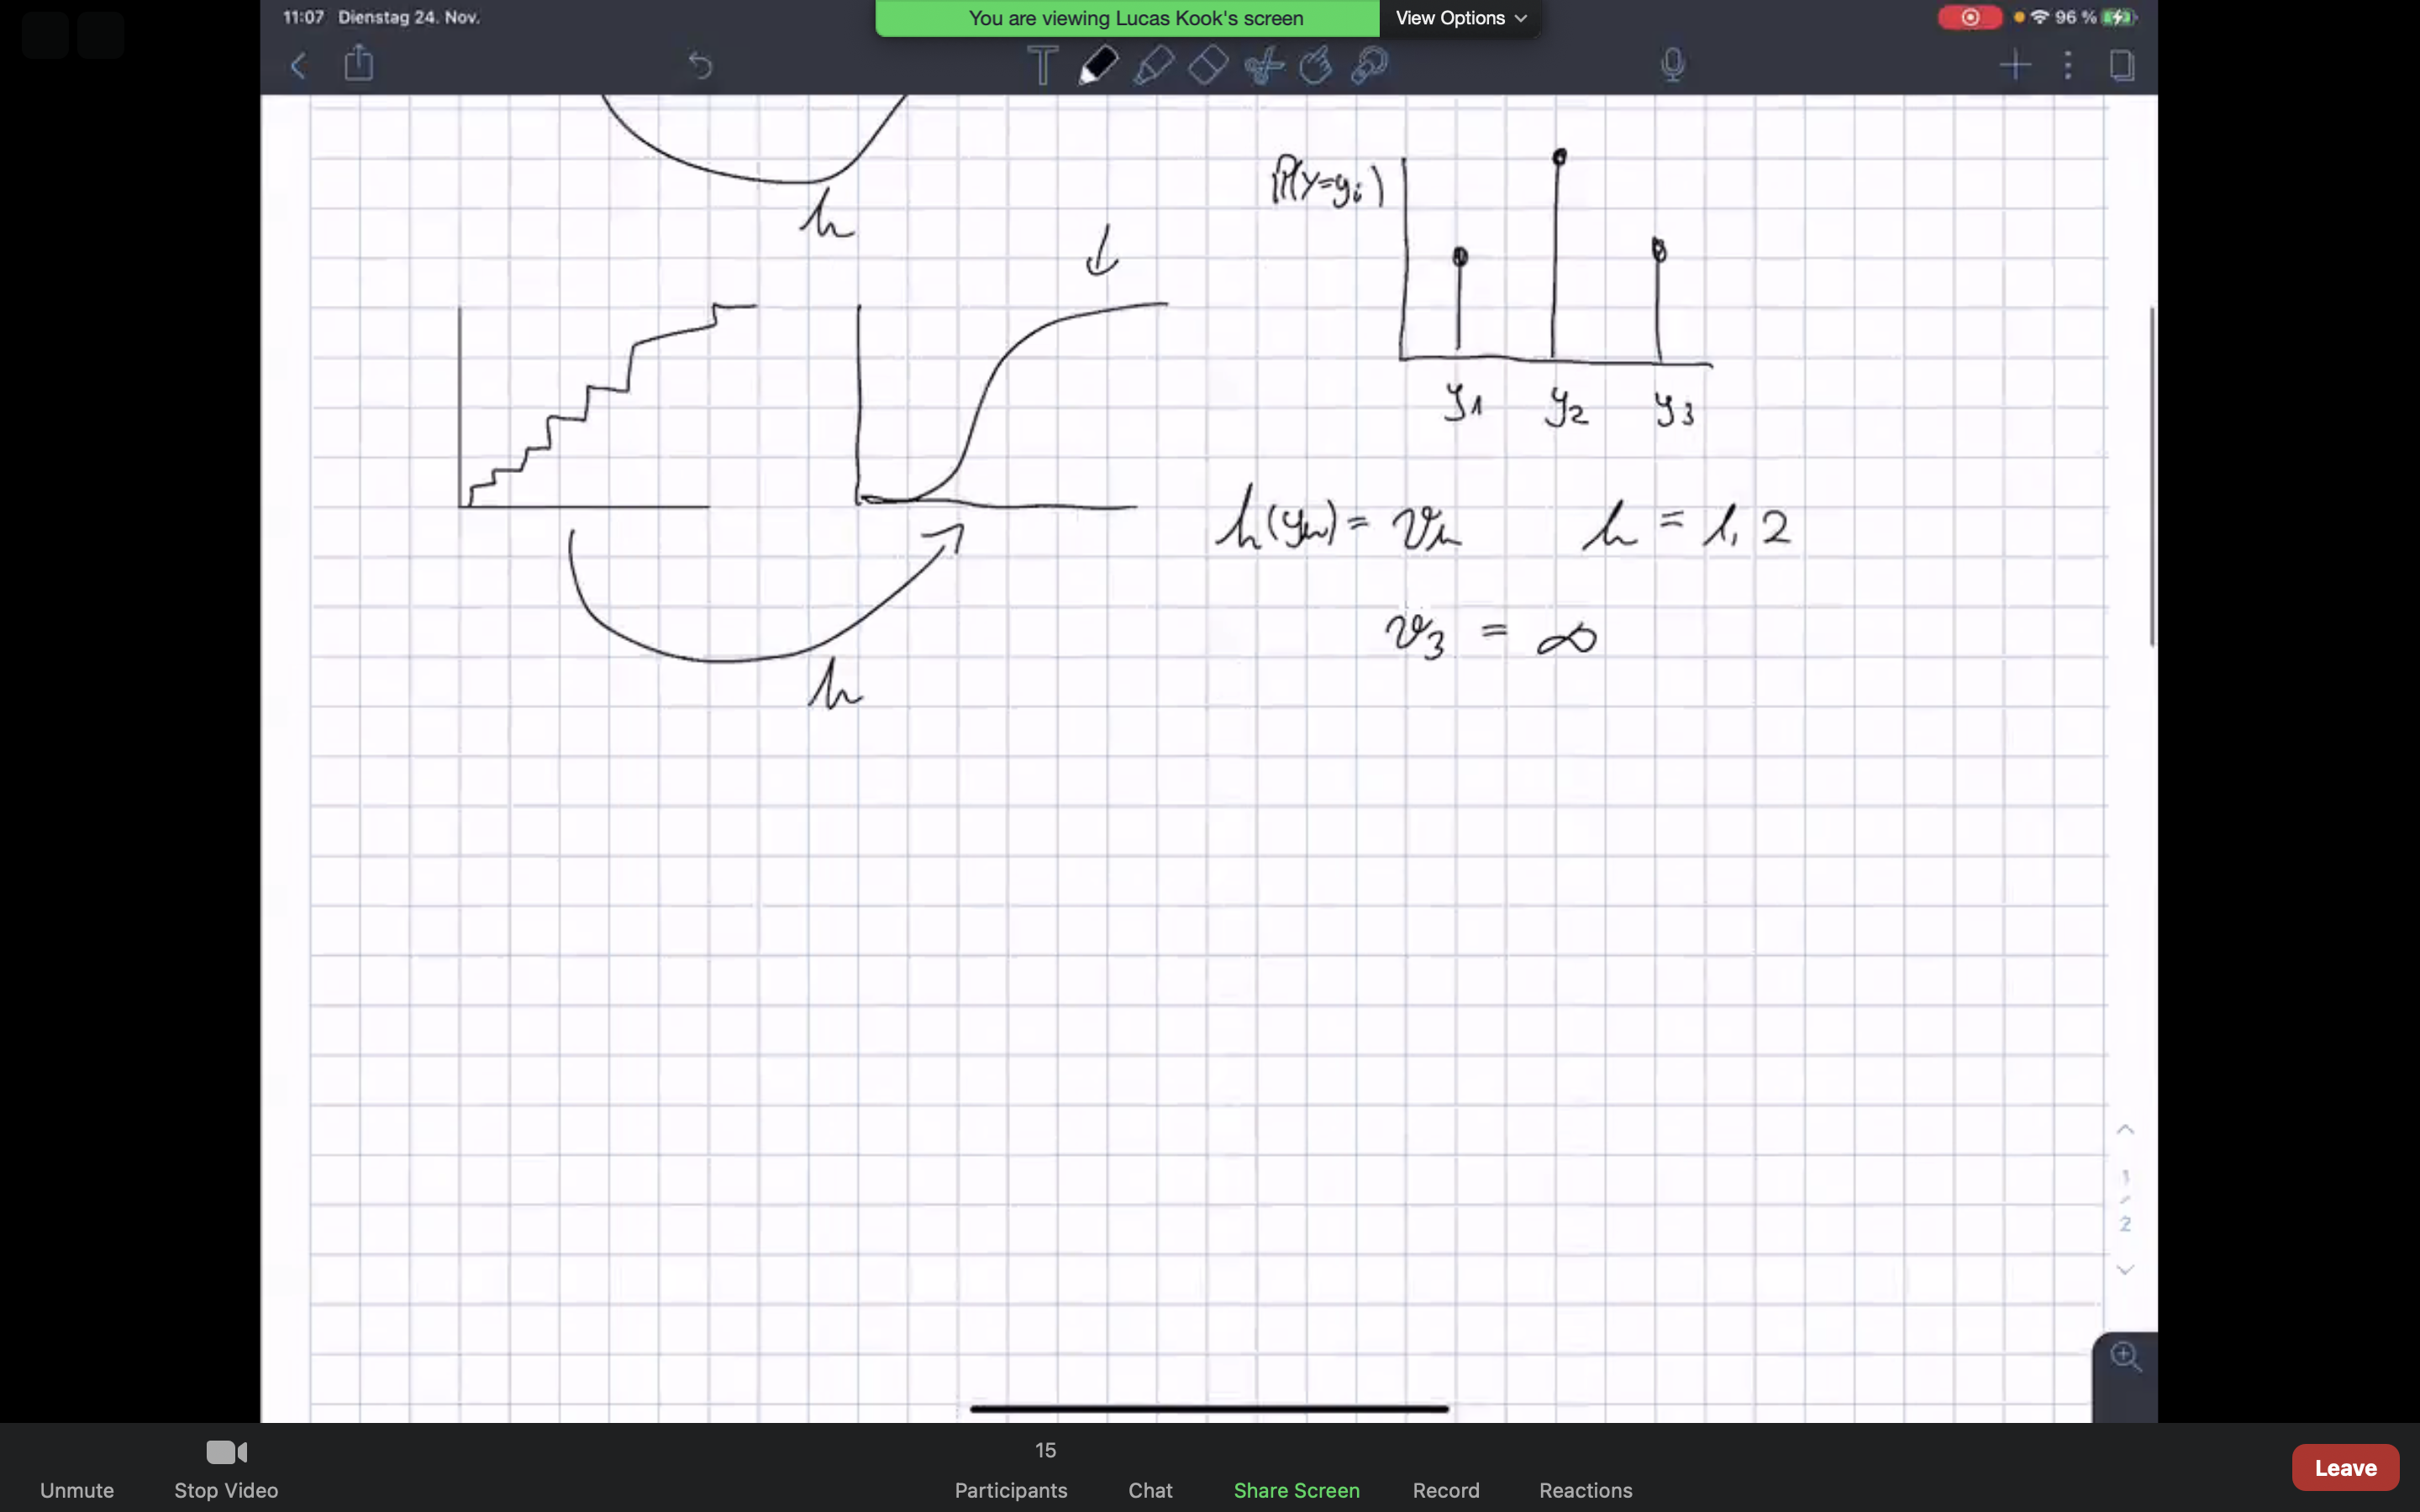 11:07 Dienstag 24. Nov.
You are viewing Lucas Kook's screen
View Options
96 %
h
P(Y=yi)
y1 y2 y3
h(yk) = ϑk k = 1, 2
ϑ3 = ∞
h
1
/
2
15
Unmute
Stop Video
Participants
Chat
Share Screen
Record
Reactions
Leave